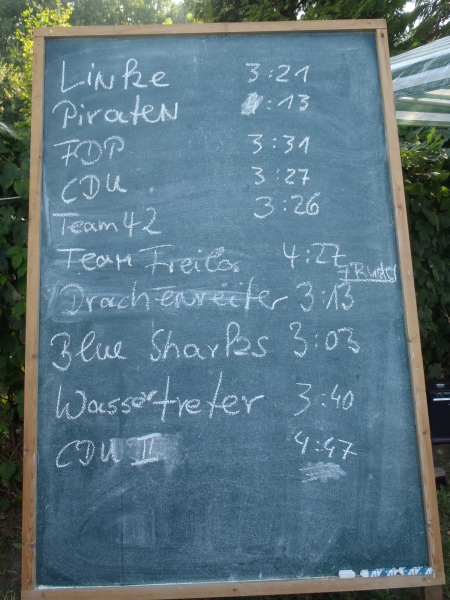 Linke 3:21
Piraten :13
FDP 3:31
CDU 3:27
Team 42 3:26
Team 4:27
Drachenreiter 3:13
Blue Sharks 3:03
Wassertreter 3:40
CDU II 4:47